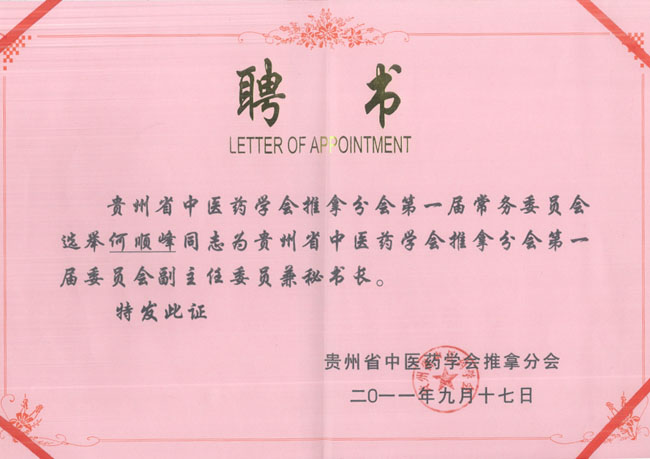 聘 书
LETTER OF APPOINTMENT
贵州省中医药学会推拿分会第一届常务委员会
选举何顺峰同志为贵州省中医药学会推拿分会第一
届委员会副主任委员兼秘书长。
特发此证
贵州省中医药学会推拿分会
二〇一一年九月十七日